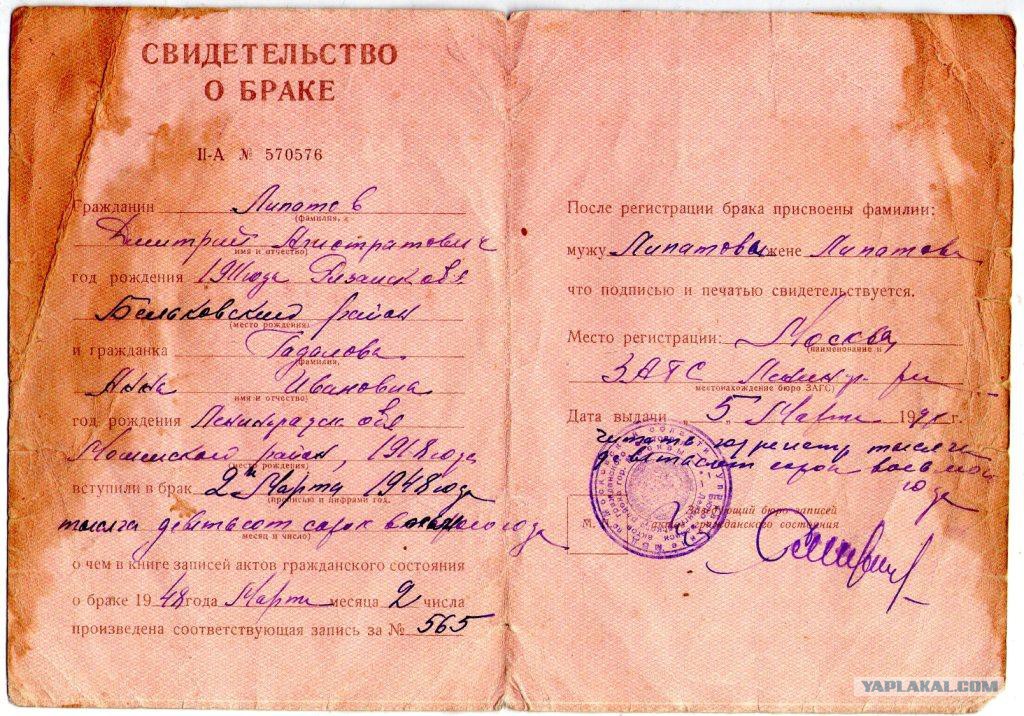 СВИДЕТЕЛЬСТВО
О БРАКЕ
II-А № 570576
Гражданин Липатов
(фамилия,
Дмитрий
имя и отчество)
год рождения
район
(место рождения)
и гражданка Гадалова
фамилия,
Анна Ивановна
имя и отчество)
год рождения Ленинградск обл
район, 1918 года
(место рождения)
вступили в брак 2го Марта 1948 года
(прописью и цифрами год,
тысяча девятьсот сорок восьмого года
месяц и число)
о чем в книге записей актов гражданского состояния
о браке 1948 года Марта месяца 2 числа
произведена соответствующая запись за № 565
После регистрации брака присвоены фамилии:
мужу Липатов жене Липатова
что подписью и печатью свидетельствуется.
Место регистрации: Москва,
(наименование и
ЗАГС
местонахождение бюро ЗАГС)
Дата выдачи 5 Марта 19 г.
тысяча
девятьсот сорок восьмой
года
М.
Заведующий бюро записей
актов гражданского состояния
YAPLAKAL.COM